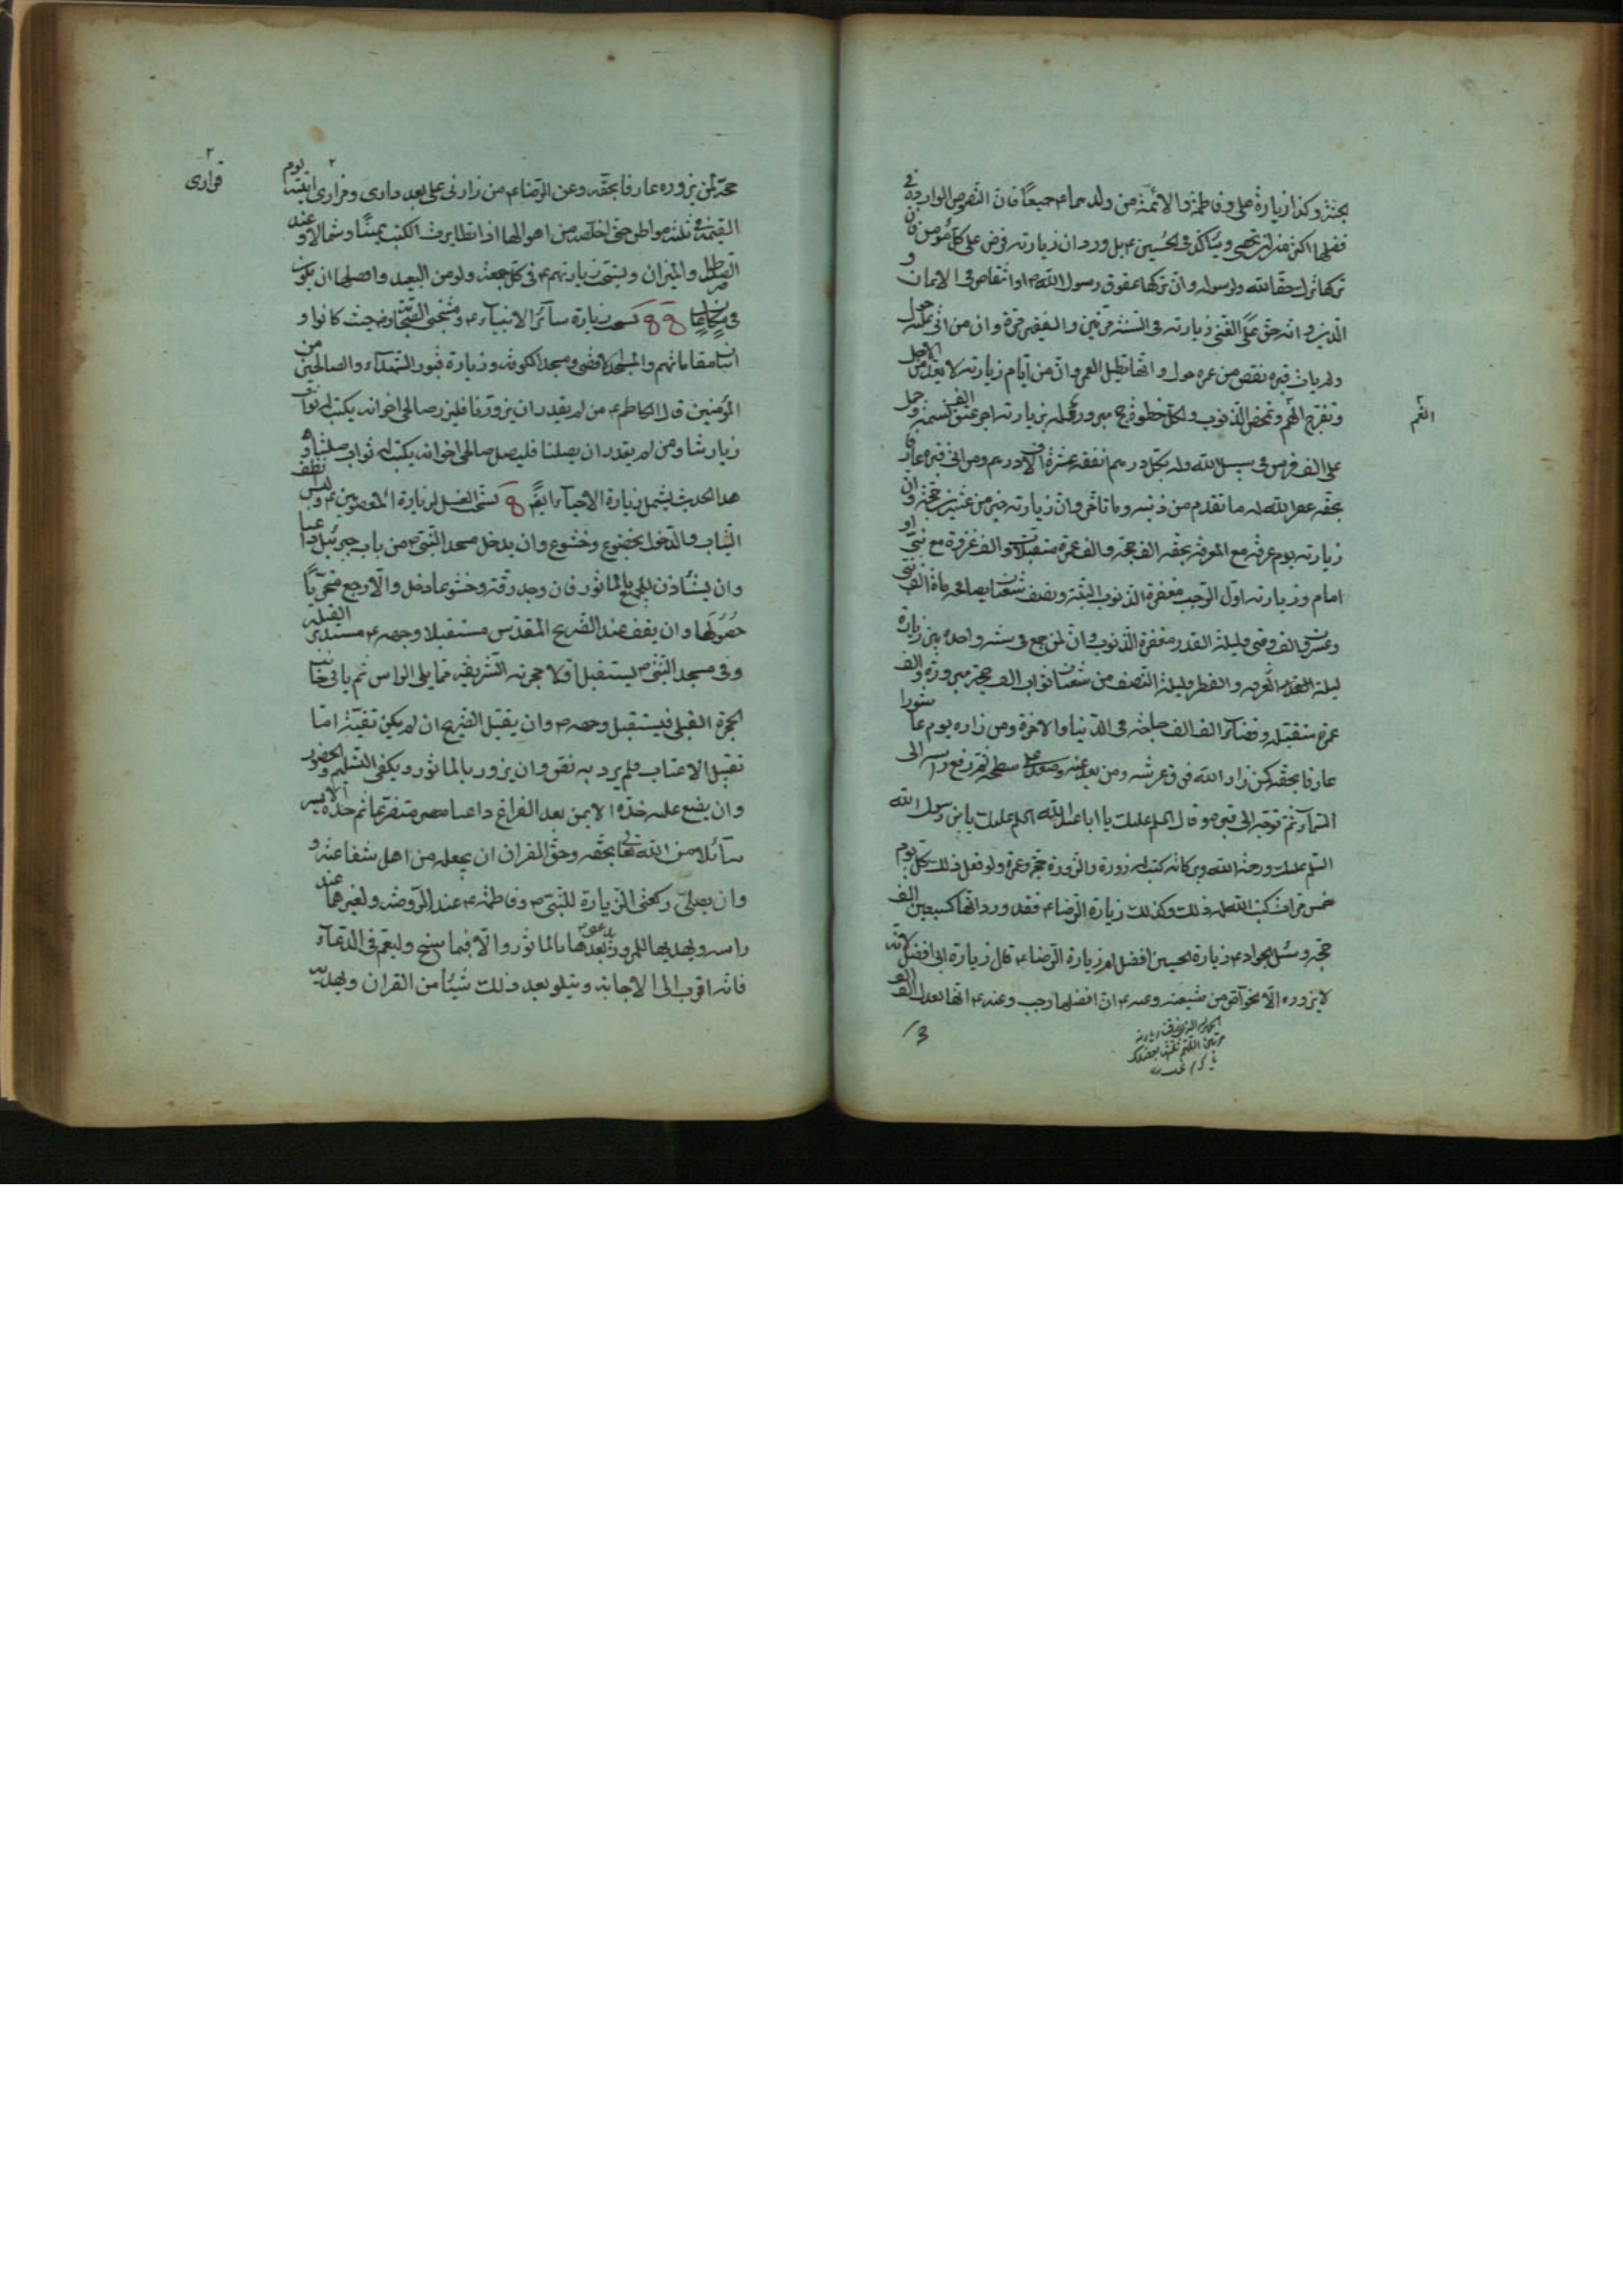 الجنة وكذا زيارة علي وفاطمة والائمة من ولدهما ع جميعاً فان النصوص الواردة في
فضلها اكثر من ان تحصى ويتأكد في الحسين ع بل ورد ان زيارته فرض على كل مؤمن وان
تركها ترك حقا لله ولرسوله وان تركها عقوق رسول الله ص وانتقاص في الايمان و
الدين وانه حق على الغني زيارته في السنة مرتين والفقير مرة وان من اتى عليه حول
ولم يات قبره نقص من عمره حول وانها تطيل العمر وان من ايام زيارته لا تعد من الاجل
وتفرج الهم وتمحص الذنوب ولكل خطوة حج مبرور وله بزيارته اجر عتق الف نسمة وحمل
الغم
على الف فرس في سبيل الله وله بكل درهم انفقه عشرة الاف درهم ومن اتى قبره عارفا
بحقه غفر الله له ما تقدم من ذنبه وما تاخر وان زيارته خير من عشرين حجة وان
زيارته يوم عرفة مع المعرفة بحقه الف حجة والف عمرة متقبلات والف غزوة مع نبي او
امام وزيارته اول الرجب مغفرة الذنوب البتة ونصف شعبان يصافحه ماة الف نبي
وعشرون الف نبي وليلة القدر مغفرة الذنوب وان لمن جمع في سنة واحدة بين زيارة
ليلة عرفة والفطر وليلة النصف من شعبان ثواب الف حجة مبرورة والف
عمرة متقبلة وقضاء الف الف حاجة في الدنيا والاخرة ومن زاره يوم عاشورا
عارفا بحقه كمن زار الله فوق عرشه ومن بعد عنه وصعد على سطحه ثم رفع راسه الى
السماء ثم توجه الى قبره وقال السلم عليك يا ابا عبد الله السلم عليك يابن رسول الله
السلم عليك ورحمة الله وبركاته كتب له زورة والزورة حجة وعمرة ولو فعل ذلك كل يوم
خمس مرات كتب الله له ذلك وكذلك زيارة الرضا ع فقد ورد انها كسبعين الف
حجة وسئل الجواد ع زيارة الحسين افضل ام زيارة الرضا ع قال زيارة ابي افضل لانه
لا يزوره الا الخواص من شيعته وعنه ع ان افضلها رجب وعنه ع انها تعدل الف الف
حجة لمن يزوره عارفا بحقه وعن الرضا ع من زارني على بعد داري ومزاري اتيته يوم
قراري
القيمة في ثلثة مواطن حتى اخلصه من اهوالها اذا تطايرت الكتب يمينا وشمالا وعند
الصراط والميزان ويستحب زيارتهم ع في كل جمعة ولو من البعيد وافضلها ان يكون
في مكان عال يستحب زيارة سائر الانبياء ع ومنتجبي الصحابة حيث كانوا و
اتيا مقاماتهم والمسجد الاقصى ومسجد الكوفة وزيارة قبور الشهداء والصالحين من
المؤمنين قال الكاظم ع من لم يقدر ان يزورنا فليزر صالحي اخوانه يكتب له ثواب
زيارتنا ومن لم يقدر ان يصلنا فليصل صالحي اخوانه يكتب له ثواب صلتنا و
هذا الحديث يشمل زيارة الاحياء ايضً يستحب الغسل لزيارة المعصومين ع ولبس نظيف
الثياب والدخول بخضوع وخشوع وان يدخل مسجد النبي ص من باب جبرئيل داعيا
وان يستاذن للجميع بالماثور فان وجد رقة وخشوعا دخل والا رجع متحريا
حصولها وان يقف عند الضريح المقدس مستقبلا وجهه ع مستدبر القبلة
وفي مسجد النبي ص يستقبل اولا حجرته الشريفة مما يلي الراس ثم ياتي جانب
الحجرة القبلي فيستقبل وجهه ص وان يقبل الضريح ان لم يكن تقية اما
تقبيل الاعتاب فلم يرد به نص وان يزور بالماثور ويكفي التسليم والحضور
وان يضع عليه خده الايمن بعد الفراغ داعيا متضرعا ثم خده الايسر
سائلا من الله تعا بحقه وحق القران ان يجعله من اهل شفاعته و
وان يصلي ركعتي الزيارة للنبي ص وفاطمة ع عند الروضة ولغيرهما عند
راسه ويهديها للمزور ويدعو بعدها بالماثور والا فبما سنح وليعم في الدعاء
فانه اقرب الى الاجابة ويتلو بعد ذلك شيئا من القران ويهديه